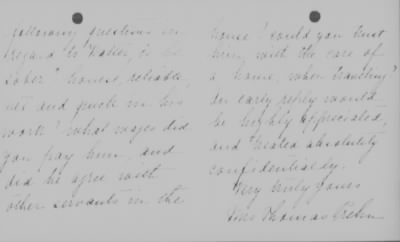 following questions in
regard to
sober? honest, reliable,
neat and quick in his
work? what wages did
you pay him, and
did he agree with
other servants in the
house? Could you trust
him, with the care of
a home, when traveling?
An early reply would
be highly appreciated,
and treated absolutely
confidentially.
Very truly yours
Mrs Thomas